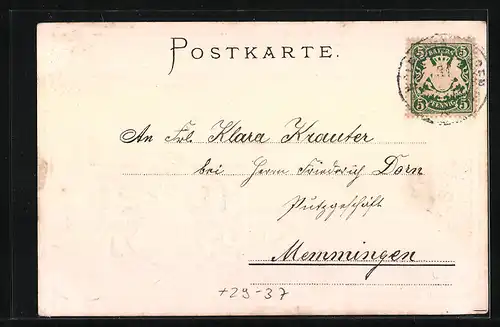 POSTKARTE.
5 BAYERN 5
5 PFENNIG 5
An Frl. Klara Krauter
bei Herrn Friedrich Dorn
Putzgeschäft
Memmingen
+29-37